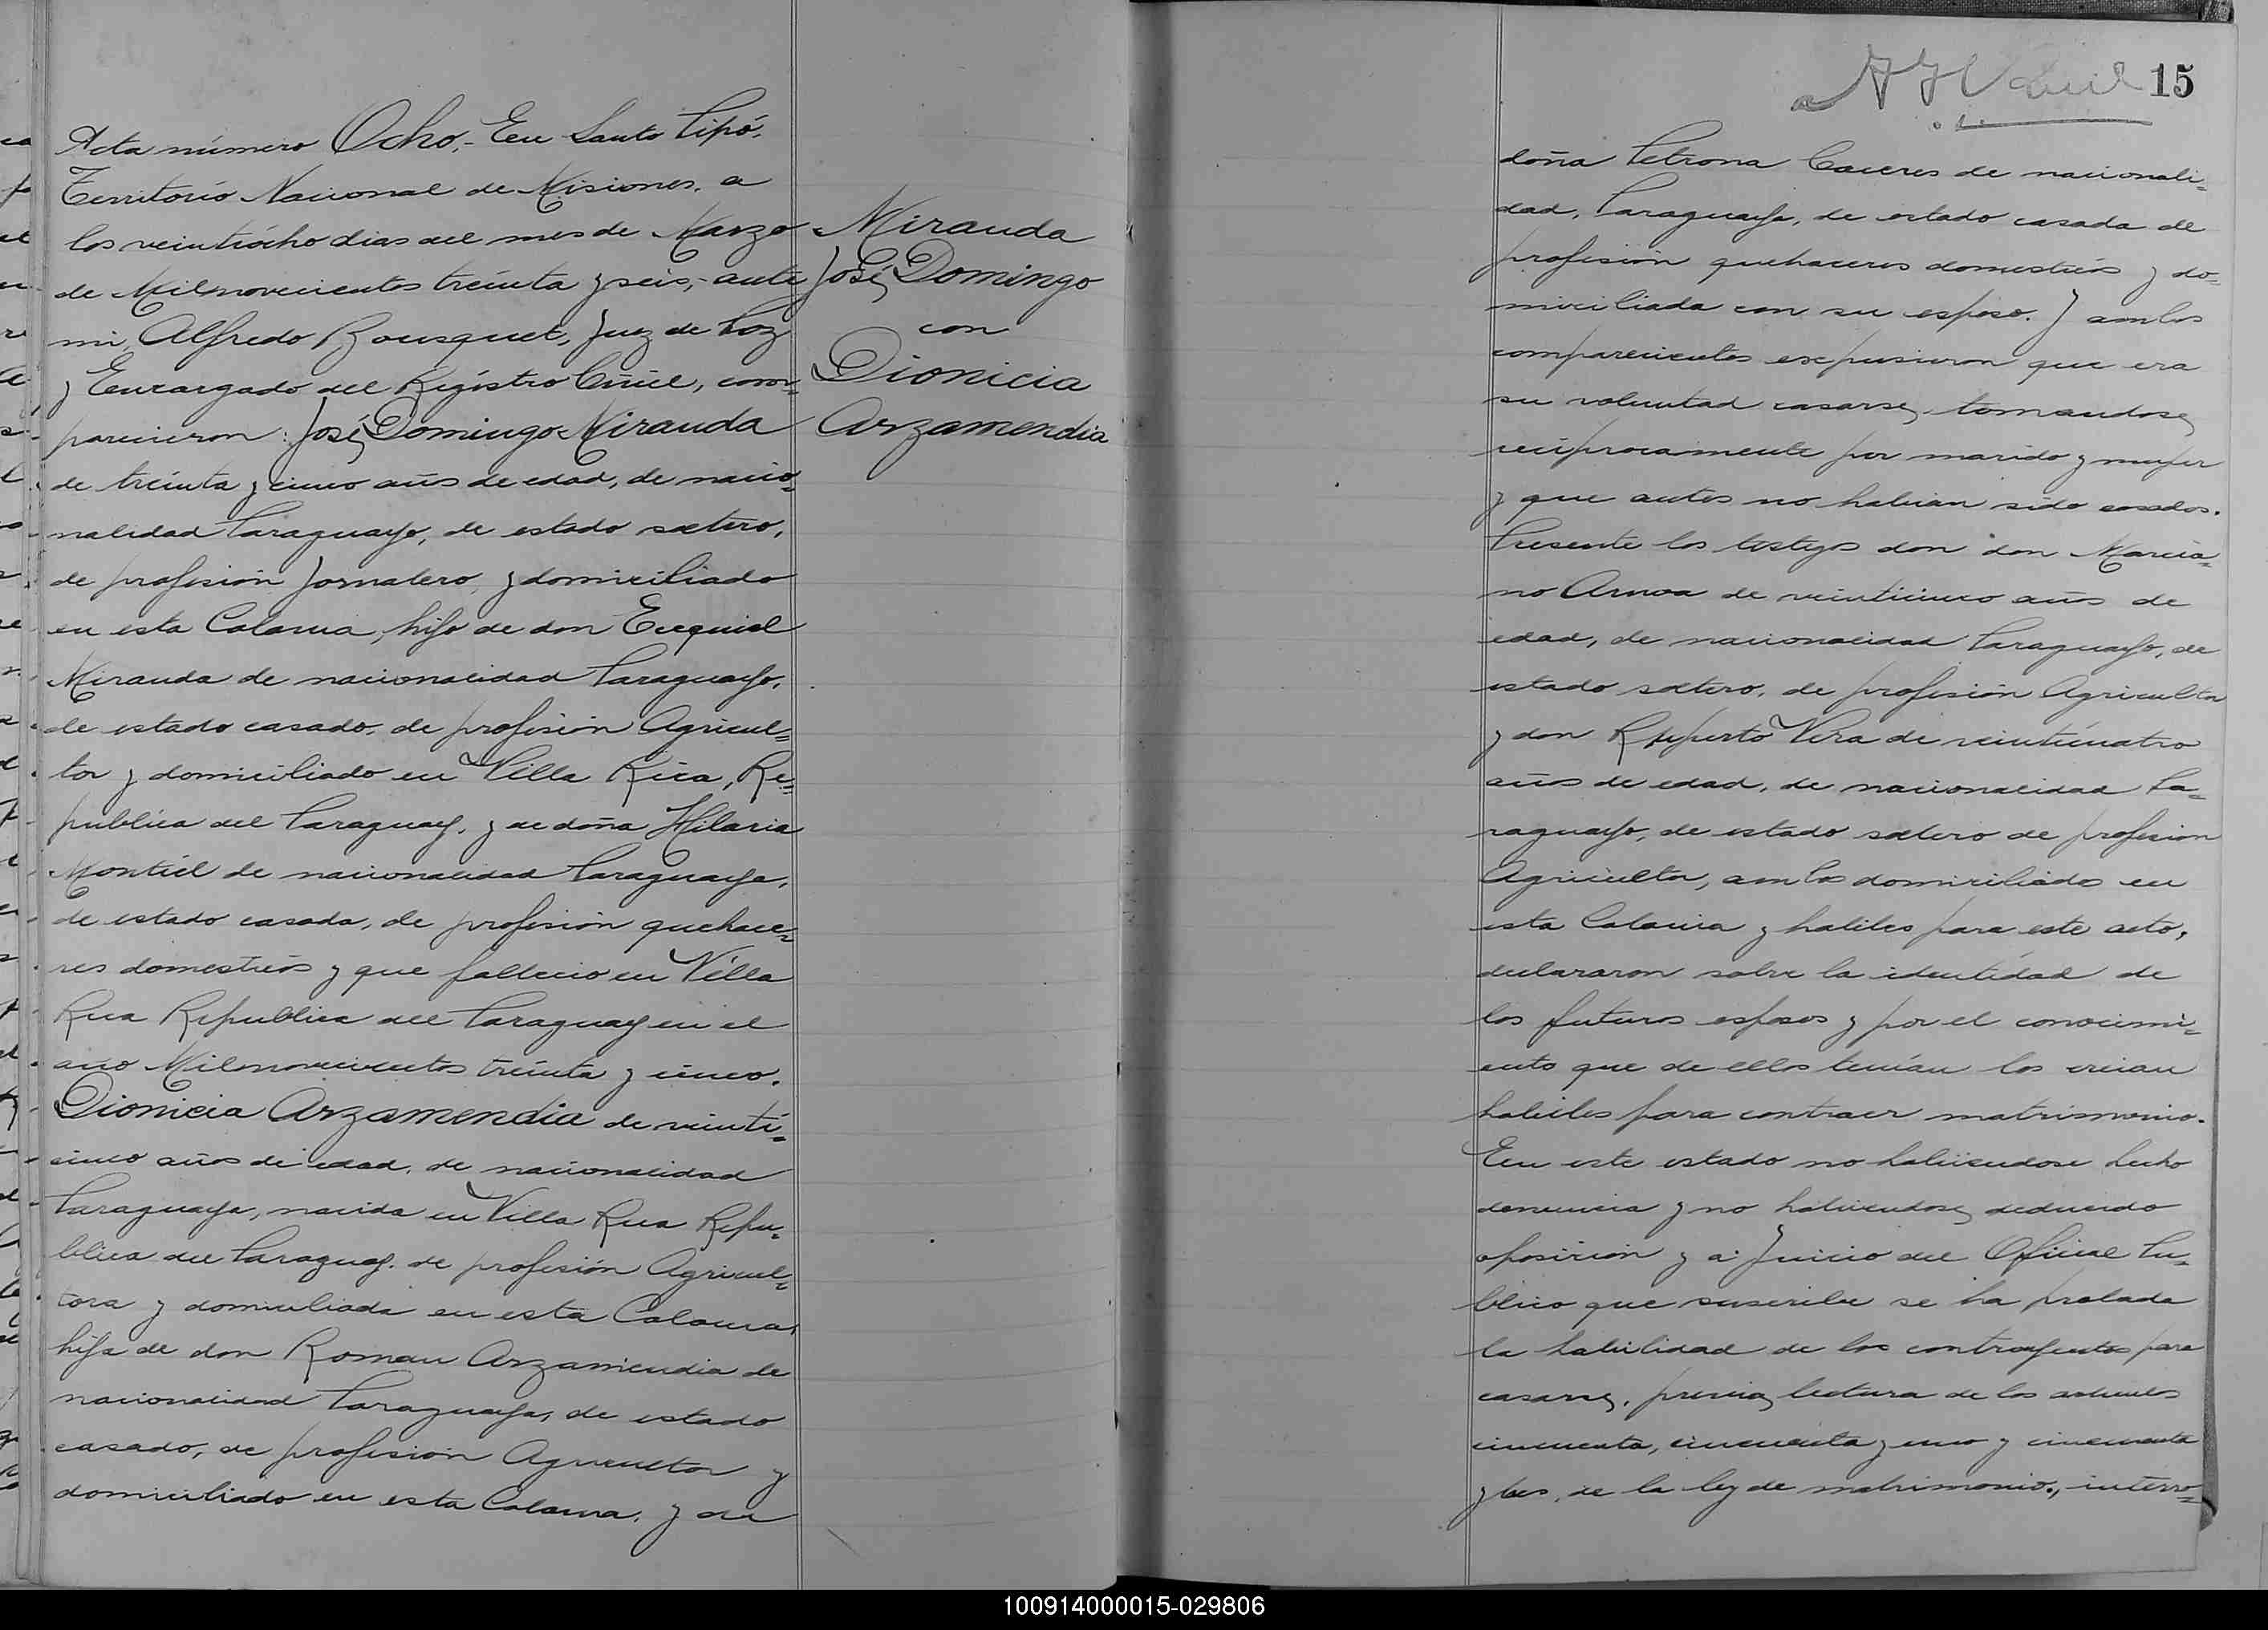 Acta número Ocho.- En Santo Pipó.
Territorio Nacional de Misiones. a
los veintiócho dias del mes de Marzo
de Milnovecientos treinta y seis,- ante
mi, Alfredo Bousquet, Juez de Paz
y Encargado del Registro Civil, com=
parecieron: José Domingo Miranda
de treinta y cinco años de edad, de nacio=
nalidad Paraguayo, de estado soltero,
de profesión Jornalero, y domiciliado
en esta Colonia, hijo de don Ezequiel
Miranda de nacionalidad Paraguayo,
de estado casado, de profesión Agricul=
tor y domiciliado en Villa Rica, Re=
publica del Paraguay, y de doña Hilaria
Montiél de nacionalidad Paraguaya,
de estado casada, de profesión quehace=
res domesticos y que fallecio en Villa
Rica Republica del Paraguay en el
año Milnovecientos treinta y cinco.
Dionicia Arzamendia de veinti=
cinco años de edad, de nacionalidad
Paraguaya, nacida en Villa Rica Repu=
blica del Paraguay, de profesión Agricul=
tora y domiciliada en esta Colonia,
hija de don Roman Arzamendia de
nacionalidad Paraguaya, de estado
casado, de profesión Agricultor y
domiciliado en esta Colonia, y de
Miranda
José Domingo
con
Dionicia
Arzamendia
15
doña Petrona Caceres de nacionali=
dad, Paraguaya, de estado casada de
profesión quehaceres domesticos y do=
miciliada con su esposo. Y ambos
comparecientes expusieron que era
su voluntad casarse, tomandose
reciprocamente por marido y mujer
y que antes no habian sido casados.
Presente los testigos don don Marcia=
no de veinticinco años de
edad, de nacionalidad Paraguayo, de
estado soltero, de profesión Agricultor
y don Ruperto Vera de veinticuatro
años de edad, de nacionalidad Pa=
raguayo, de estado soltero de profesion
Agricultor, ambos domiciliados en
esta Colonia y habiles para este acto,
declararon sobre la identidad de
los futuros esposos y por el conocimi=
ento que de ellos tenian los creian
habiles para contraer matrimonio.
En este estado no habiendose hecho
denuncia y no habiendose deducido
oposición y a Juicio del Oficial Pu=
blico que suscribe se ha probado
la habilidad de los contrayentes para
casarse, previa lectura de los articulos
cincuenta, cincuenta y uno y cincuenta
y tres, de la ley de matrimonio., interro=
100914000015-029806